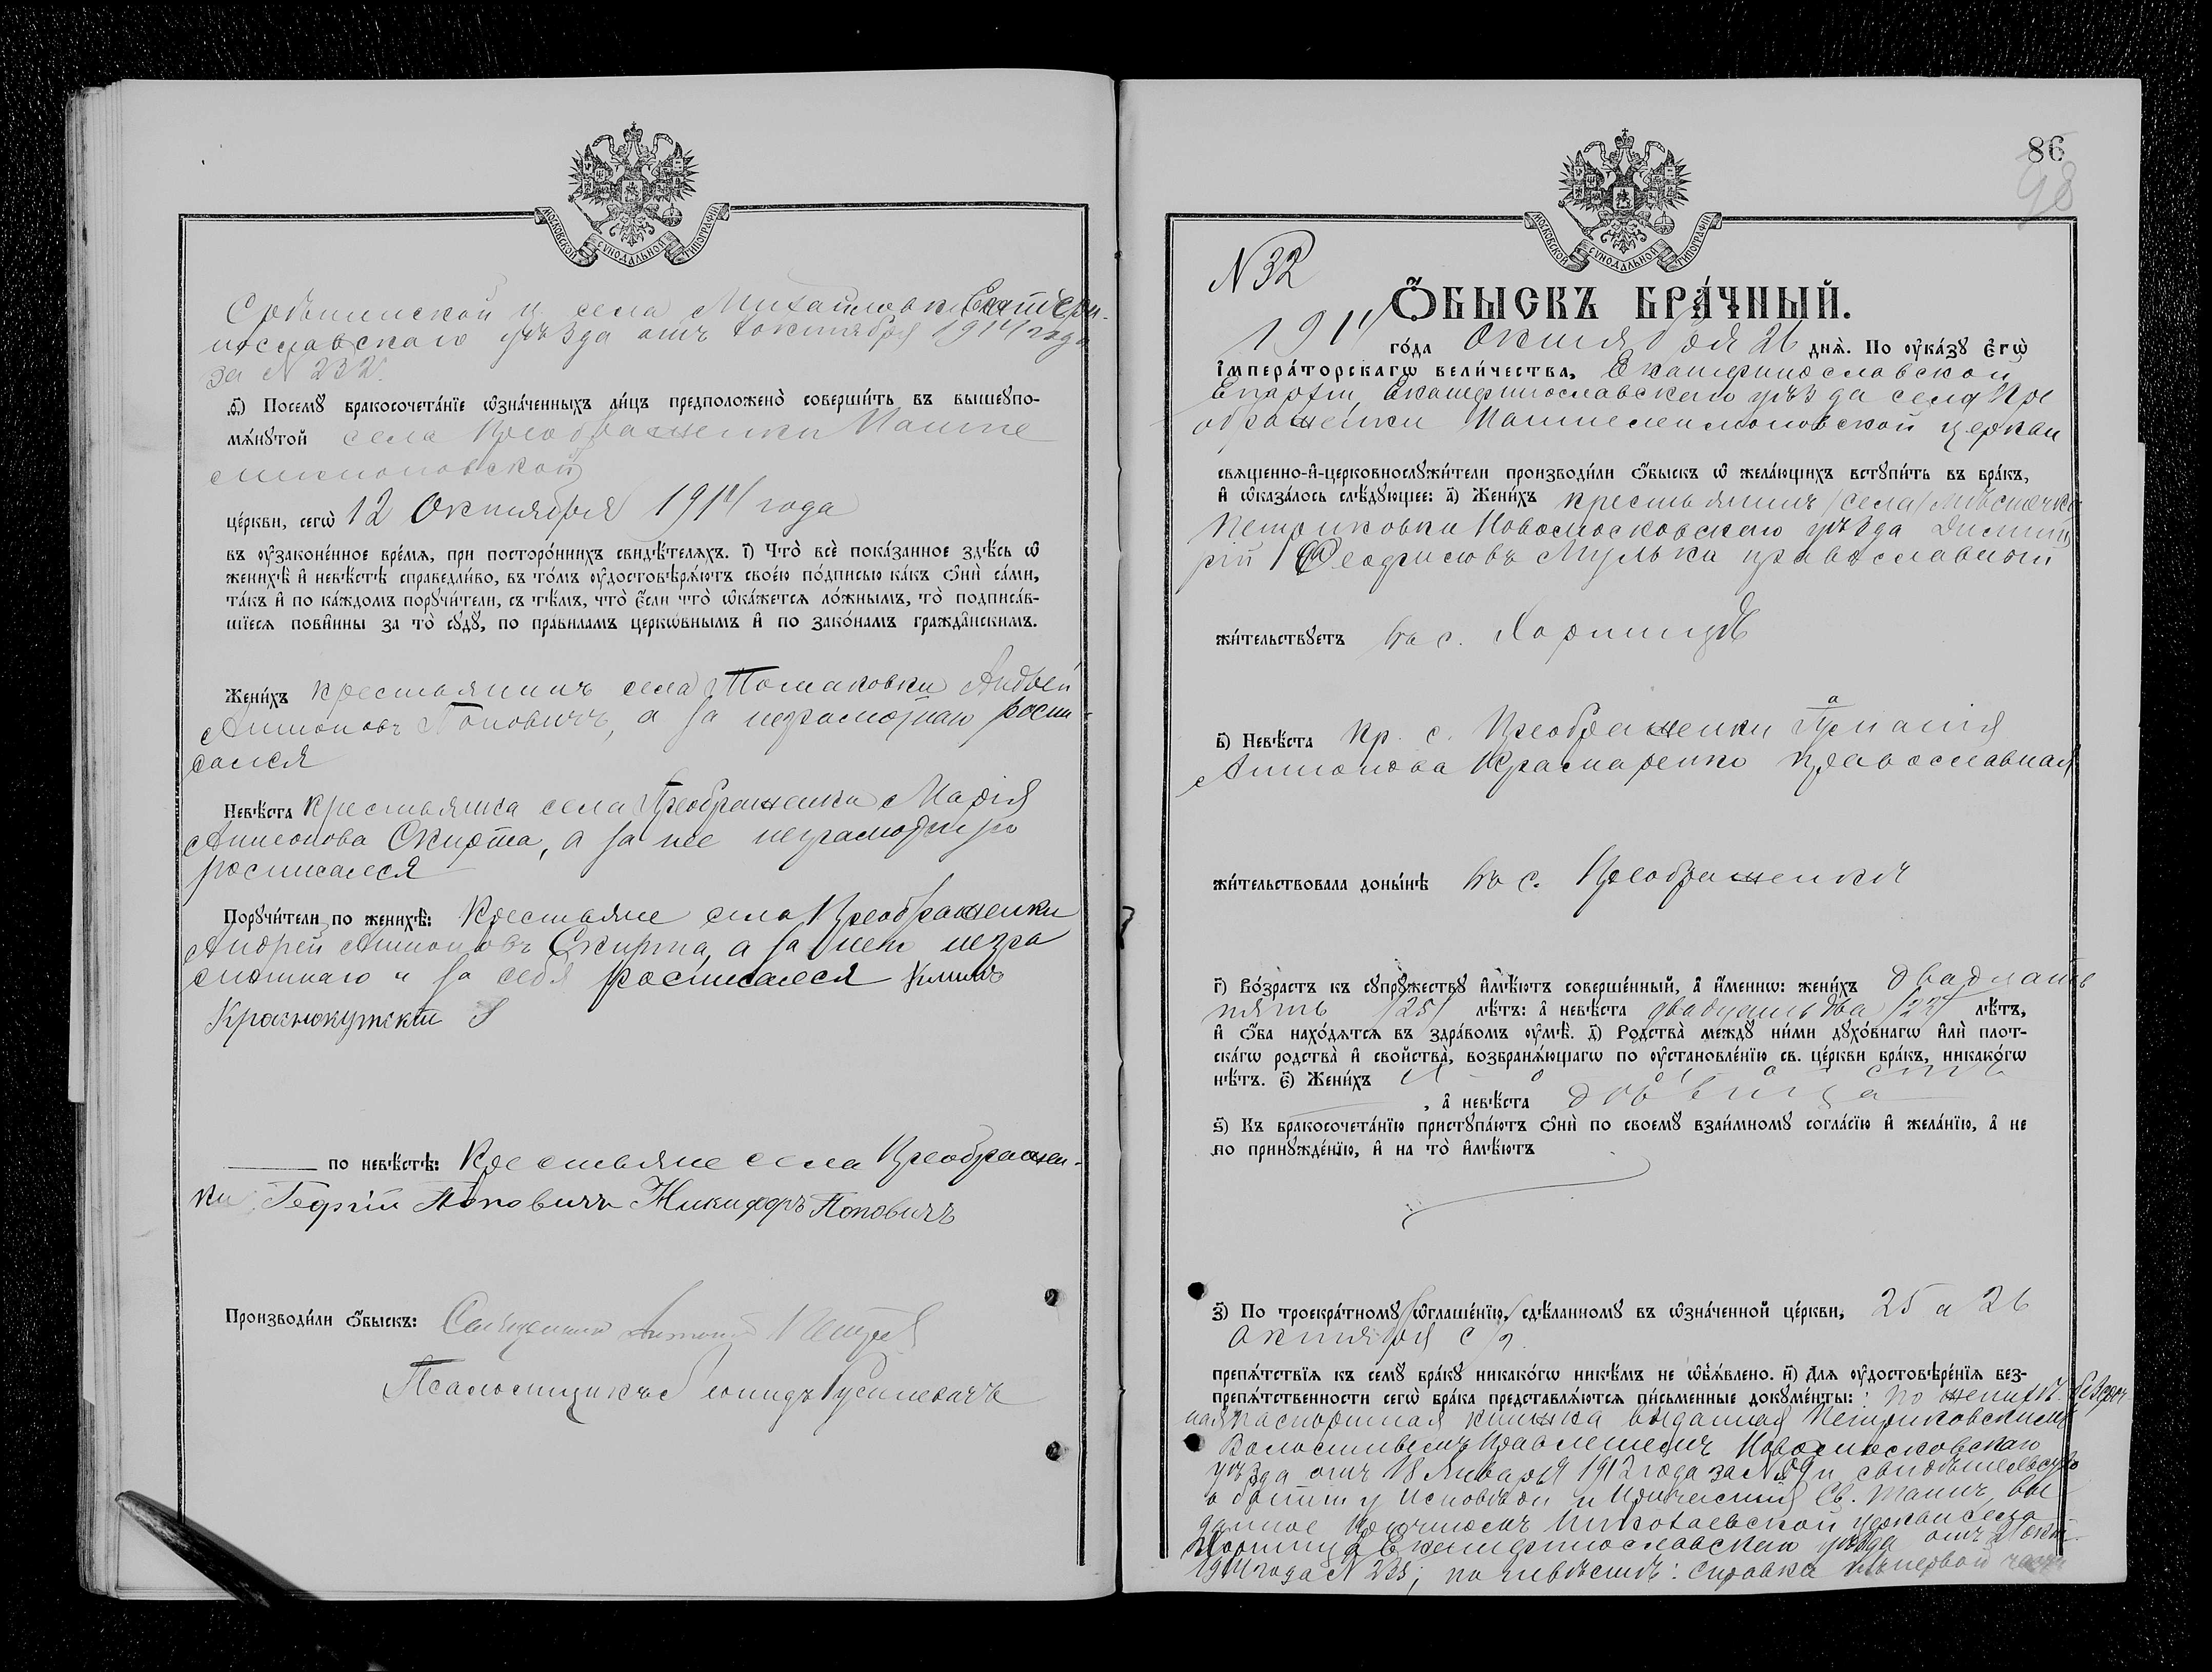 МОСКОВСКОЙ СѴНОДАЛЬНОЙ ТИПОГРАФІИ
села Михайловки Екатери-
нославскаго уѣзда отъ октября 1914 года
за N 232.
Посемꙋ бракосочета́нїе ѡ҆зна́ченныхъ ли́цъ предположено̀ соверши́ть въ вышеꙋпо-
мѧ́нꙋтой села Преображенки Панте
леимоновской
це́ркви, сегѡ̀ 12 Октября 1914 года
въ ᲂу҆законе́нное вре́мѧ, при посторо́ннихъ свидѣ́телѧхъ. і҃) Что̀ всѐ пока́занное здѣ́сь ѡ҆
женихѣ̀ и҆ невѣ́стѣ справедли́во, въ то́мъ ᲂу҆достовѣрѧ́ютъ свое́ю по́дписью ка́къ ѻ҆нѝ са́ми,
та́къ и҆ по ка́ждомъ порꙋчи́тели, съ тѣ́мъ, что̀ є҆́сли что̀ ѡ҆ка́жетсѧ ло́жнымъ, то̀ подписа́в-
шїесѧ пови́нны за то̀ сꙋдꙋ̀, по пра́виламъ церко́внымъ и҆ по зако́намъ гражда́нскимъ.
Жени́хъ крестьянинъ села Томаковки Андрей
Антоновъ Поповичъ, а за неграмотнаго роспи-
сался
Невѣ́ста крестьянка села Преображенки Марія
Антонова Скирта, а за нее неграмотную
росписался
Порꙋчи́тели по женихѣ̀: Крестьяне села Преображенки
Андрей Антоновъ Скирта, а за него негра
мотнаго и за себя росписался Климъ
Краснокутскій
по невѣ́стѣ: Крестьяне села Преображен-
ки Георгій Поповичъ Никифоръ Поповичъ
Производи́ли ѻ҆́быскъ: Священникъ
Псаломщикъ Леонидъ
86
98
МОСКОВСКОЙ СѴНОДАЛЬНОЙ ТИПОГРАФІИ
N 32
Ѻ҆́БЫСКЪ БРА́ЧНЫЙ.
1914 го́да Октября 26 днѧ̀. По ᲂу҆ка́зꙋ є҆гѡ̀
і҆мпера́торскагѡ вели́чества, Екатеринославской
Епархіи, Екатеринославскаго уѣзда села Пре
ображенки Пантелеимоновской церкви
свѧще́нно-и҆-церковнослꙋжи́тели производи́ли ѻ҆́быскъ ѡ҆ жела́ющихъ встꙋпи́ть въ бра́къ,
и҆ ѡ҆каза́лось слѣ́дꙋющее: а҃) Жени́хъ крестьянинъ /села/ мѣстечка
Петриковки Новомосковскаго уѣзда Дмит
рій Мулька православный
жи́тельствꙋетъ въ с. Хортицѣ
в҃) Невѣ́ста Кр. с. Преображенки
Антонова Краснаренко православная
жи́тельствовала доны́нѣ въ с. Преображенки
г҃) Во́зрастъ къ сꙋпрꙋ́жествꙋ и҆мѣ́ютъ соверше́нный, а҆ и҆́меннѡ: жени́хъ двадцать
пять /25/ лѣ́тъ: а҆ невѣ́ста двадцать два /22/ лѣ́тъ,
и҆ ѻ҆́ба нахо́дѧтсѧ въ здра́вомъ ᲂу҆мѣ̀. д҃) Родства̀ ме́ждꙋ ни́ми дꙋхо́внагѡ и҆лѝ плот-
ска́гѡ родства̀ и҆ сво́йства, возбранѧ́ющагѡ по ᲂу҆становле́нїю св. це́ркви бра́къ, никако́гѡ
нѣ́тъ. є҃) Жени́хъ
, а҆ невѣ́ста дѣвица
ѕ҃) Къ бракосочета́нїю пристꙋпа́ютъ ѻ҆нѝ по своемꙋ̀ взаи́мномꙋ согла́сїю и҆ жела́нїю, а҆ не
по принꙋжде́нїю, и҆ на то̀ и҆мѣ́ютъ
з҃) По троекра́тномꙋ ѡ҆глаше́нїю, сдѣ́ланномꙋ въ ѡ҆зна́ченной це́ркви, 25 и 26
октября с/г.
препѧ́тствїѧ къ семꙋ̀ бра́кꙋ никако́гѡ никѣ́мъ не ѡ҆б̾ѧ́влено. и҃) Длѧ ᲂу҆достовѣре́нїѧ без-
препѧ́тственности сегѡ̀ бра́ка представлѧ́ютсѧ пи́сьменные докꙋме́нты: по женихѣ: безсроч
ная паспортная книжка выданная Петриковскимъ
Волостнымъ Правленіемъ Новомосковскаго
уѣзда отъ 18 Января 1912 года за N свидѣтельство
о бытіи у исповѣди и причастія Св. Таинъ, вы
данное причтомъ Николаевской церкви села
Хортицы Екатеринославскаго уѣзда отъ окт.
1914 года N 235; по невѣстѣ: справка изъ первой части